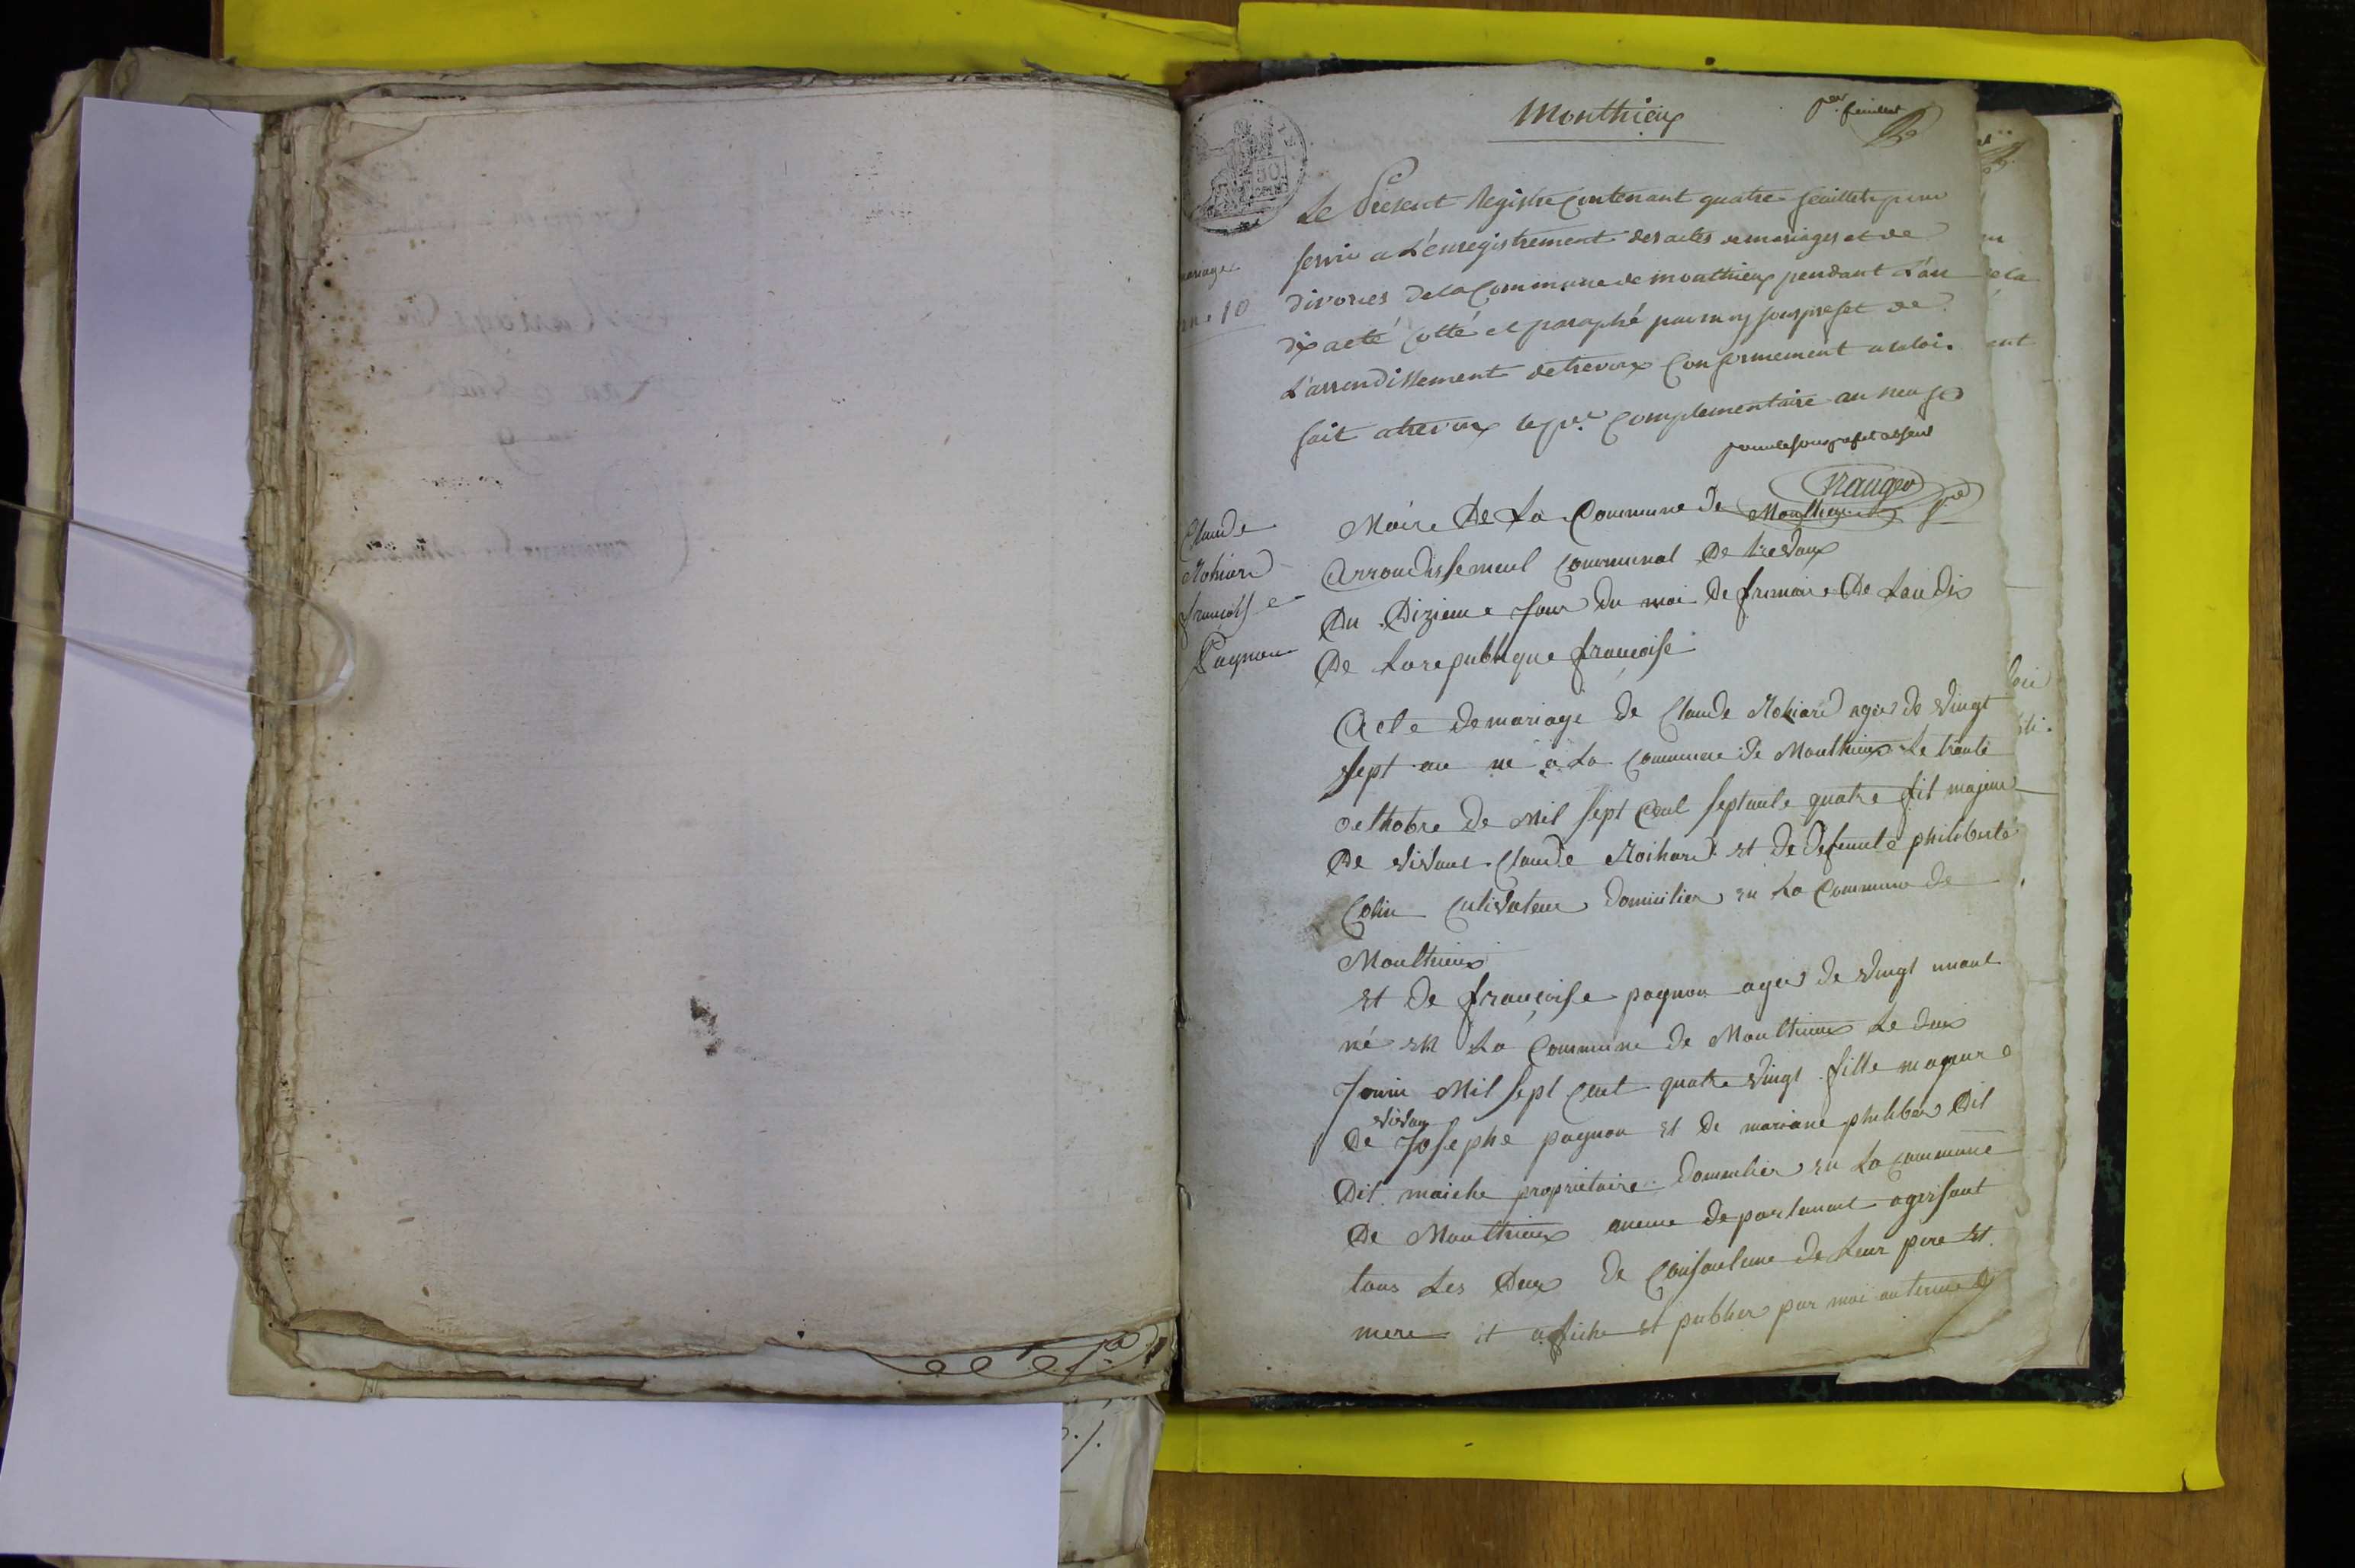 Monthieux
per feuillet
Le Present Registre Contenant quatre feuillets pour
servir a L'enregistrement des actes de mariages et de
mariages
divorces de la Commune de monthieux pendant L'an
an 10
dix a eté Cotté et paraphé par moy sousprefet de
L'arrondissement de trevoux Conformement a la loi.
fait a trevoux le per Complementaire an neuf
pour le sousprefet absent
Claude
Rohiard
françoisse
Pagnon
Maire De La Commune de Monthieux
Arrondissement Communal De trevoux
Du Dizieme Jour du moi de frimaire De Lan dix
De La republique françoise
Acte de mariage de Claude Rohiard agee de vingt
sept an ne a La Commune de Monthieux Le trante
octhobre de mil sept Cent septante quatre fil majeur
De vivant Claude Roihard et de defunte philiberte
Colin Cultivateur Domicilier en La Commune de
Monthieux
et de françoise pagnon agee de vingt unant
né en La Commune de Monthieux Le deux
Jouin Mil sept Cent quatre vingt fille majeure
vivan
De Josephe pagnon et de mariane philiber Dit
Dit maiche proprietaire Domicilier en La commune
De Monthieux meme departemant agissant
tous Les Deux de Consanteme de Leur pere et
mere et afiche et publier par moi